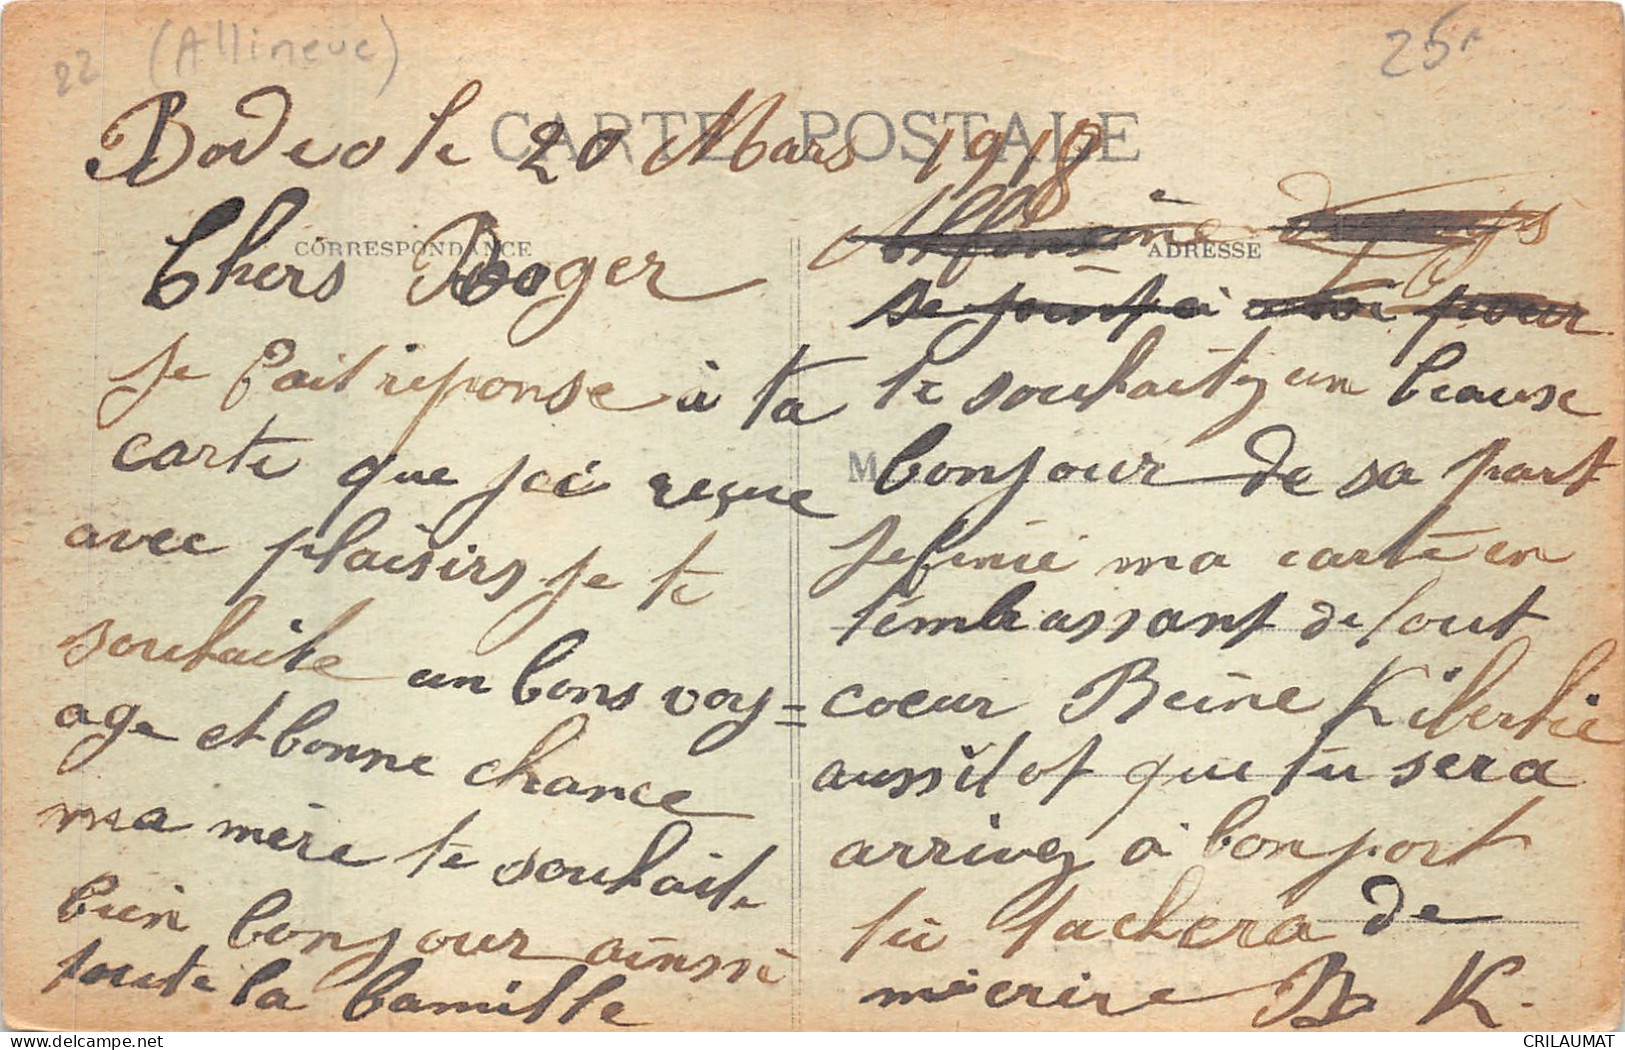 22 (Allineuc)
25
CARTE POSTALE
Bodeo le 20 Mars 1918
CORRESPONDANCE
Chers Roger
je fait réponse à ta
carte que jai reçue
avec plaisirs je te
souhaite un bons voy=
age et bonne chance
ma mère te souhaite
bien bonjour ainssi
toute la famille
ADRESSE
Alfonsine
se joint à moi pour
te souhaitez un beaux
M
bonjour de sa part
je finie ma carte en
t'embrassant de tout
coeur Reine Kilertie
aussitot que tu sera
arrivez à bonport
tu tachera de
m'ecrire R K.
CRILAUMAT